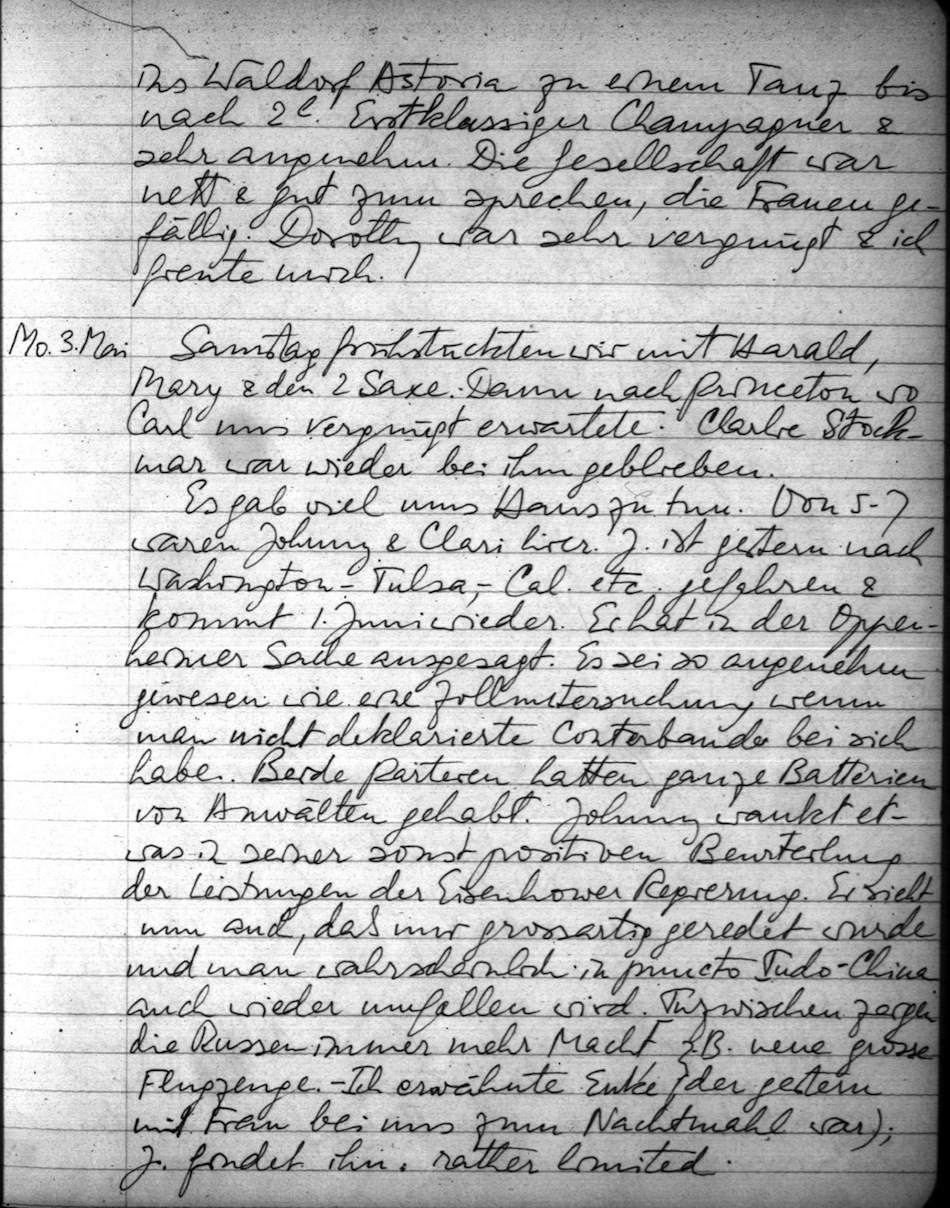 ins Waldorf Astoria zu einem Tanz bis
nach 2h. Erstklassiger Champagner &
sehr angenehm. Die Gesellschaft war
nett & gut zum sprechen, die Frauen ge-
fällig. Dorothy war sehr vergnügt & ich
freute mich.
Mo. 3. Mai Samstag frühstückten wir mit Harald,
Mary & den 2 Saxe. Dann nach Princeton wo
Carl uns vergnügt erwartete. Charlie Stock-
mar war wieder bei ihm geblieben.
Es gab viel ums Haus zu tun. Von 5-7
waren Johnny & Clari hier. J. ist gestern nach
Washington - Tulsa, - Cal. etc. gefahren &
kommt 1. Juni wieder. Er hat in der Oppen-
heimer Sache ausgesagt. Es sei so angenehm
gewesen wie eine Zolluntersuchung wenn
man nicht deklarierte Conterbande bei sich
habe. Beide Parteien hatten ganze Batterien
von Anwälten gehabt. Johnny wankt et-
was in seiner sonst positiven Beurteilung
der Leistungen der Eisenhower Regierung. Er sieht
nun auch, daß nur grossartig geredet wurde
und man wahrscheinlich in puncto Indo-China
auch wieder umfallen wird. Inzwischen zeigen
die Russen immer mehr Macht z.B. neue grosse
Flugzeuge. - Ich erwähnte Enke (der gestern
mit Frau bei uns zum Nachtmahl war);
J. findet ihn: rather limited.